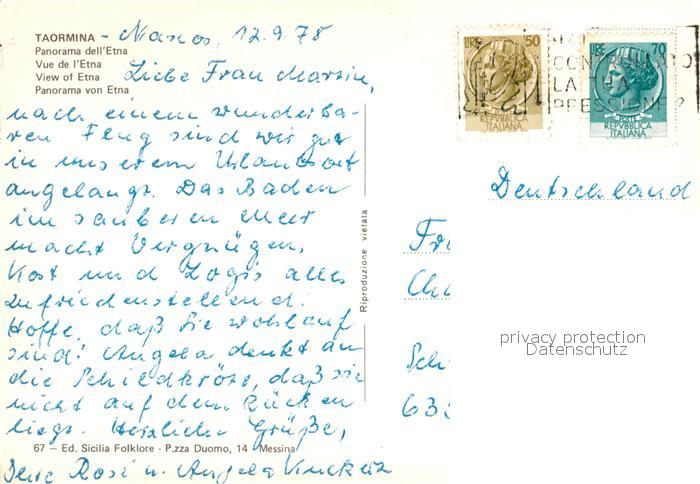 TAORMINA - Naxos, 12.9.78
Panorama dell'Etna
Vue de l'Etna
View of Etna
Panorama von Etna
Liebe Frau
nach einem wunderba-
ren Flug sind wir gut
in unserem Urlaubsort
angelangt. Das Baden
im sauberen Meer
macht Vergnügen,
Kost und Logis alles
zufriedenstellend.
Hoffe, daß Sie wohlauf
sind! Angela denkt an
die Schildkröte, daß sie
nicht auf dem Rücken
liegt. Herzliche Grüße,
67 — Ed. Sicilia Folklore - P.zza Duomo, 14 - Messina
Rosi u. Angela
Riproduzione vietata
LIRE 50
REPVBBLICA
ITALIANA
LIRE 70
REPVBBLICA
ITALIANA
CONTROLLATO
LA TUA
PRESSIONE?
Deutschland
privacy protection
Datenschutz